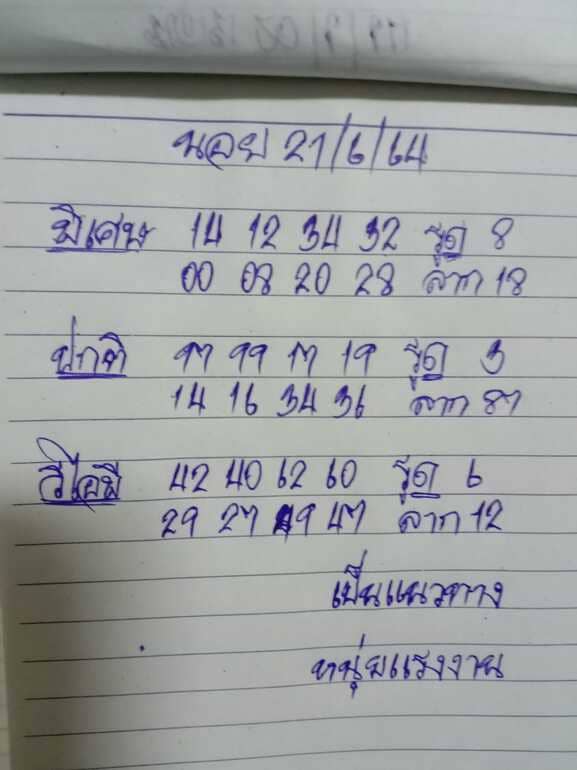 นอย 21/6/64
พิเศษ 14 12 34 32 รูด 8
00 08 20 28 ลาก 18
ปกติ 97 99 17 19 รูด 3
14 16 34 36 ลาก 87
วีไอพี 42 40 62 60 รูด 6
29 27 49 47 ลาก 12
เป็นแนวทาง
หนุ่มแรงงาน